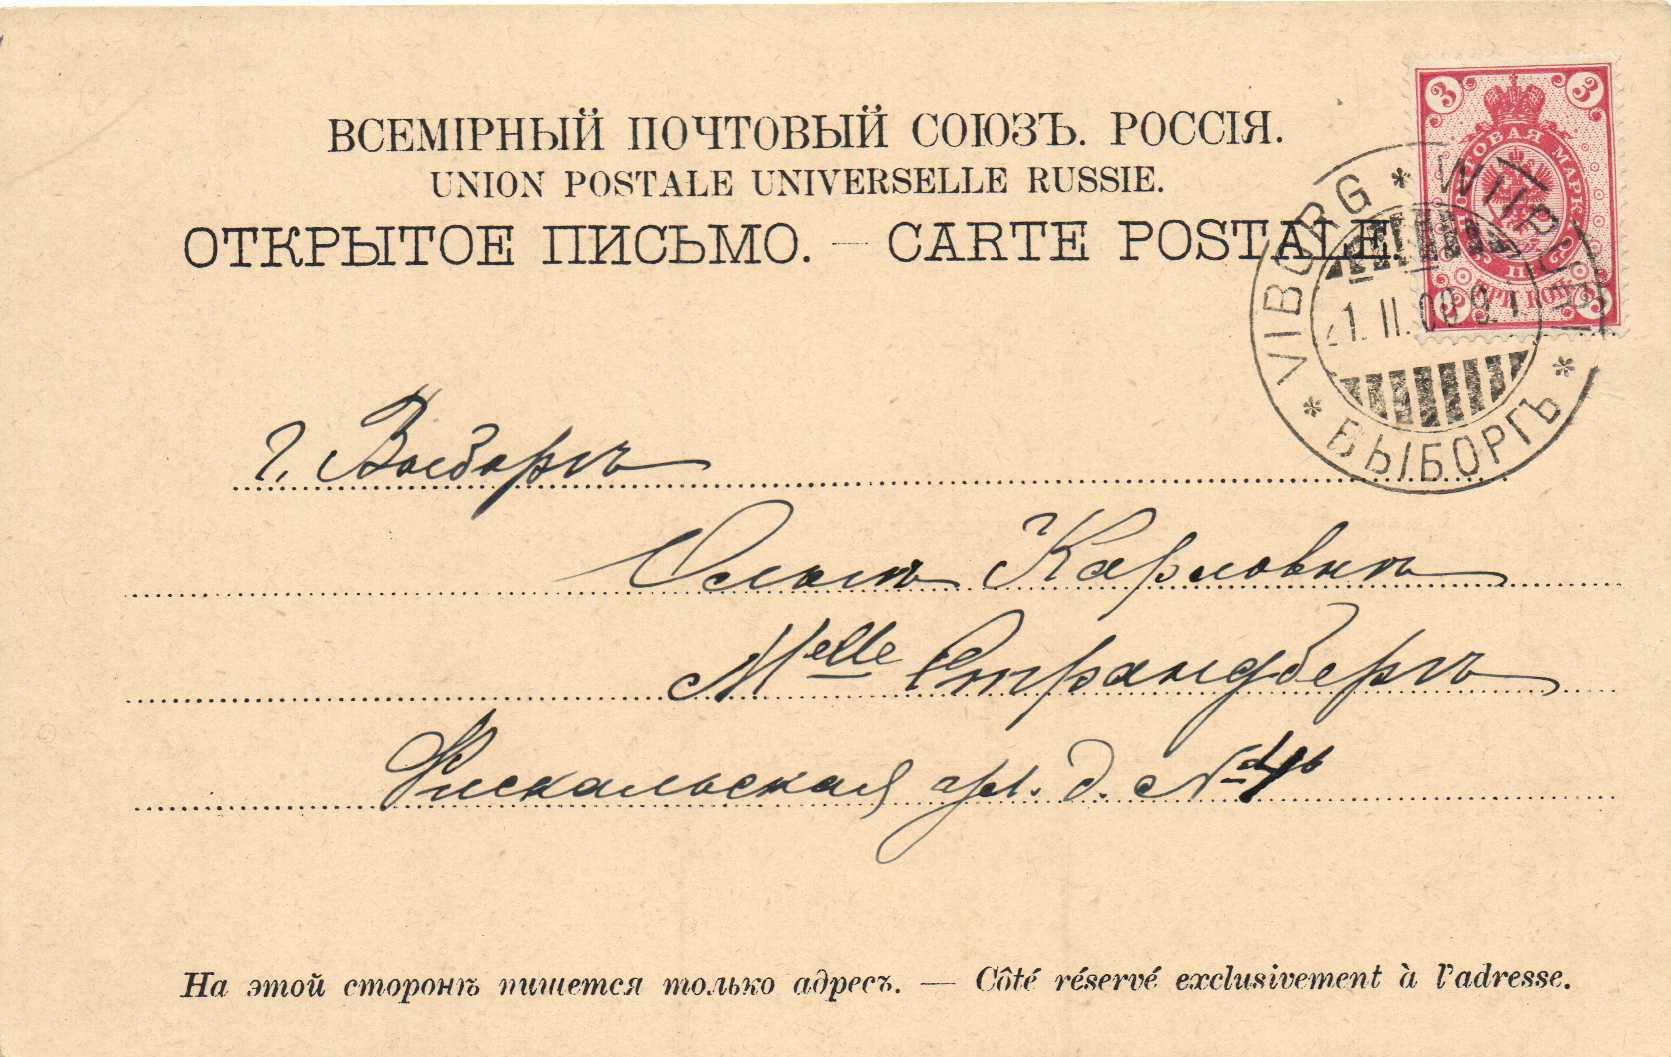 ВСЕМІРНЫЙ ПОЧТОВЫЙ СОЮЗЪ. РОССІЯ.
UNION POSTALE UNIVERSELLE RUSSIE.
ОТКРЫТОЕ ПИСЬМО. — CARTE POSTALE.
3 3
ПОЧТОВАЯ МАРКА
ТРИ КОП.
3 3
VIBORG * WIIPURI * ВЫБОРГЪ *
1. II. 00 9.
г. Выборгъ
Карловнѣ
Melle Страндбергъ
Фискальская ул. д. № 4
На этой сторонѣ пишется только адресъ. — Côté réservé exclusivement à l'adresse.